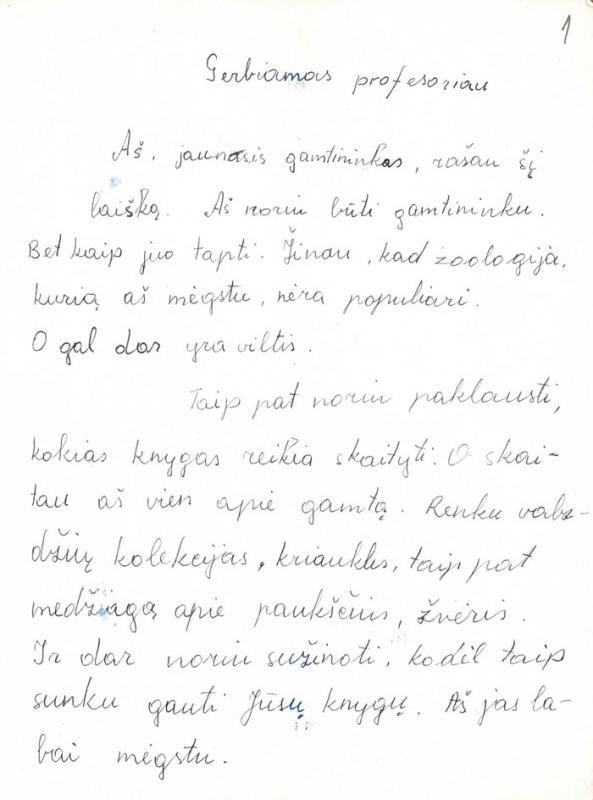 1
Gerbiamas profesoriau
Aš, jaunasis gamtininkas, rašau šį
laišką. Aš noriu būti gamtininku.
Bet kaip juo tapti. Žinau, kad zoologija,
kurią aš mėgstu, nėra populiari.
O gal dar yra viltis.
Taip pat noriu paklausti,
kokias knygas reikia skaityti. O skai-
tau aš vien apie gamtą. Renku vabz-
džių kolekcijas, kriaukles, taip pat
medžiagą apie paukščius, žvėris.
Ir dar noriu sužinoti, kodėl taip
sunku gauti Jūsų knygų. Aš jas la-
bai mėgstu.